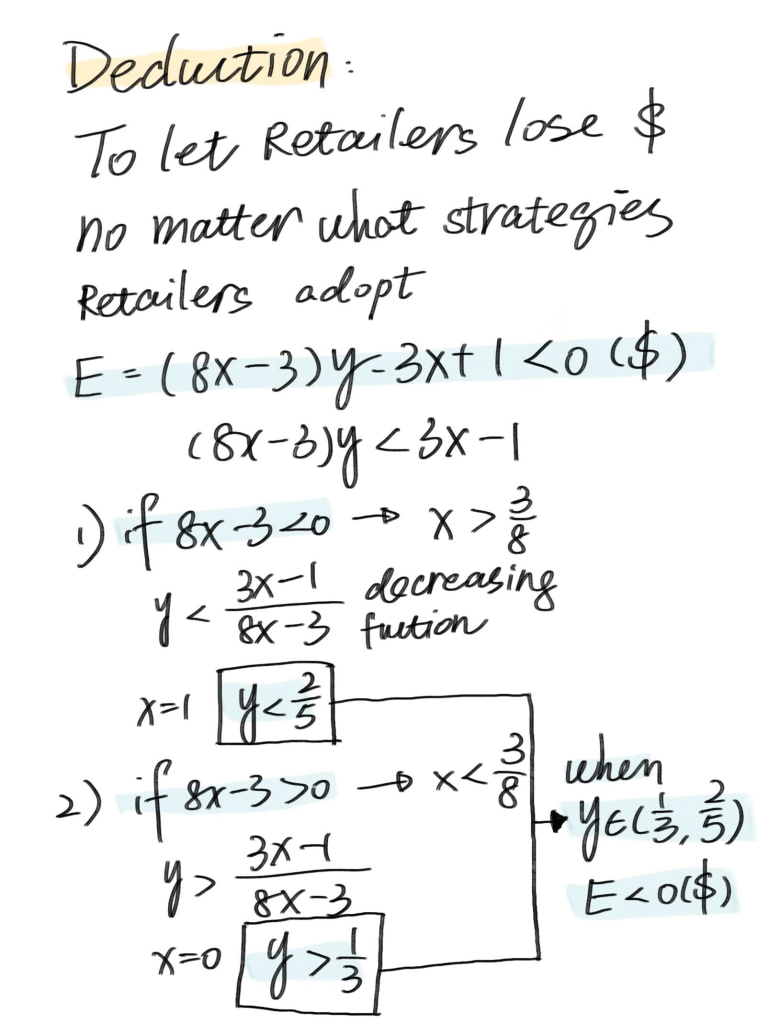 Deduction:
To let Retailers lose $
no matter what strategies
Retailers adopt
E = (8x-3)y-3x+1<0 ($)
(8x-3)y<3x-1
1) if 8x-3<0 → x>3/8
y< 3x-1/8x-3 decreasing
fuction
x=1 y<2/5
2) if 8x-3>0 → x<3/8
y> 3x-1/8x-3
x=0 y>1/3
when
y∈(1/3, 2/5)
E<0($)